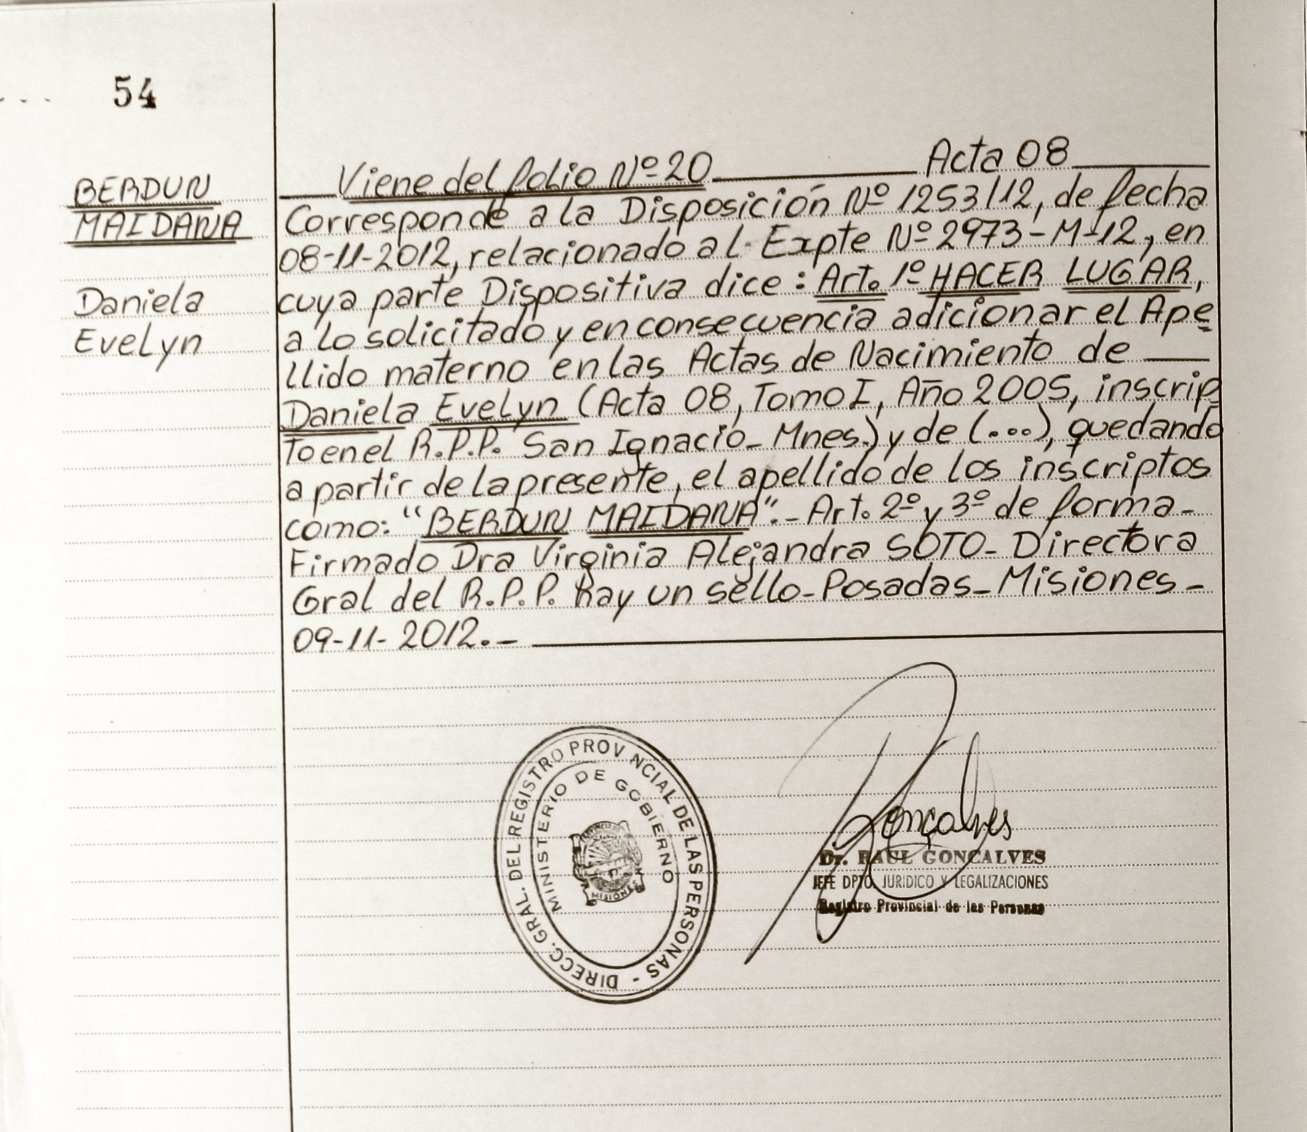 54
BERDUN
MAIDANA
Daniela
Evelyn
Viene del folio Nº 20 Acta 08
Corresponde a la Disposición Nº 1253/12, de fecha
08-11-2012, relacionado al Expte Nº 2973-M-12, en
cuya parte Dispositiva dice: Art. 1º HACER LUGAR,
a lo solicitado y en consecuencia adicionar el Ape
llido materno en las Actas de Nacimiento de
Daniela Evelyn (Acta 08, Tomo I, Año 2005, inscrip
to en el R.P.P. San Ignacio_ Mnes.) y de (...), quedando
a partir de la presente, el apellido de los inscriptos
como: "BERDUN MAIDANA".- Art. 2º y 3º de forma-
Firmado Dra Virginia Alejandra SOTO- Directora
Gral del R.P.P. Hay un sello-Posadas-Misiones-
09-11-2012.-
DIRECC. GRAL. DEL REGISTRO PROVINCIAL DE LAS PERSONAS -
MINISTERIO DE GOBIERNO
MISIONES
Gonçalves
Dr. RAUL GONCALVES
JEFE DPTO JURIDICO Y LEGALIZACIONES
Registro Provincial de las Personas